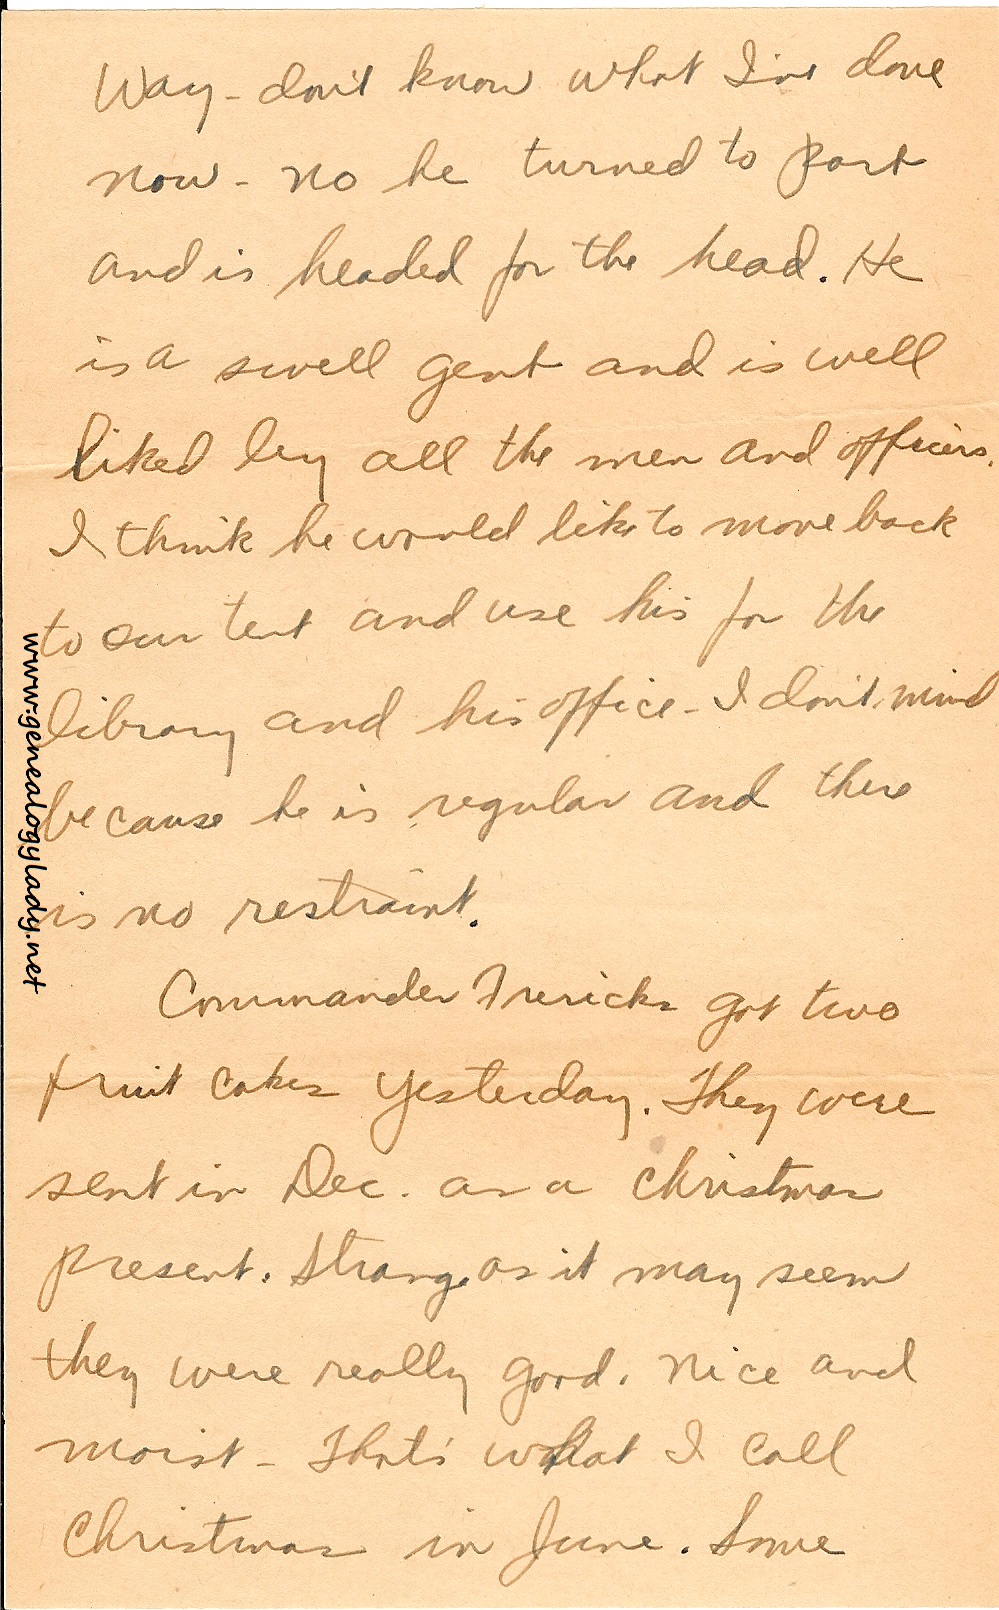 Way - don't know what I've done
now - no he turned to port
and is headed for the head. He
is a swell gent and is well
liked by all the men and officers.
I think he would like to move back
to our tent and use his for the
library and his office - I don't mind
because he is regular and there
is no restraint.
Commander Frericks got two
fruit cakes yesterday. They were
sent in Dec. as a Christmas
present. Strange as it may seem
they were really good. Nice and
moist - That's what I call
Christmas in June. Some
www.genealogylady.net